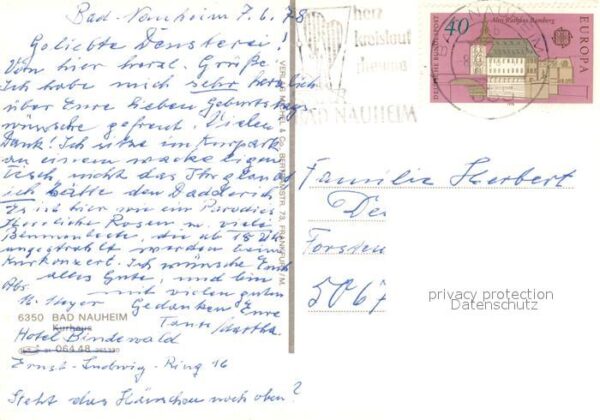 Bad-Nauheim 7.6.78
Geliebte Densterei!
Vom hier herzl. Grüße
Ich habe mich sehr herzlich
über Eure lieben Geburtstags
wünsche gefreut. Vielen
Dank! Ich sitze im Kurpark
an einem wackeligen
Tisch nicht das Ihr glaubt
ich hätte den Dadderich
Es ist hier wie ein Paradies
Herrliche Rosen u. viele
Blumenbeete, die ab 18 Uhr
angestrahlt werden beim
Kurkonzert. Ich wünsche Euch
alles Gute, und bin
Abs. mit vielen guten
M. Meyer Gedanken Eure
Tante Martha
6350 BAD NAUHEIM
Kurhaus
Hotel Bindewald
06448
Ernst-Ludwig-Ring 16
Steht das Häuschen noch oben?
herz
kreislauf
rheuma
BAD NAUHEIM
40
Altes Rathaus Bamberg
EUROPA
DEUTSCHE BUNDESPOST
Familie Herbert
Forsten
5067
privacy protection
Datenschutz